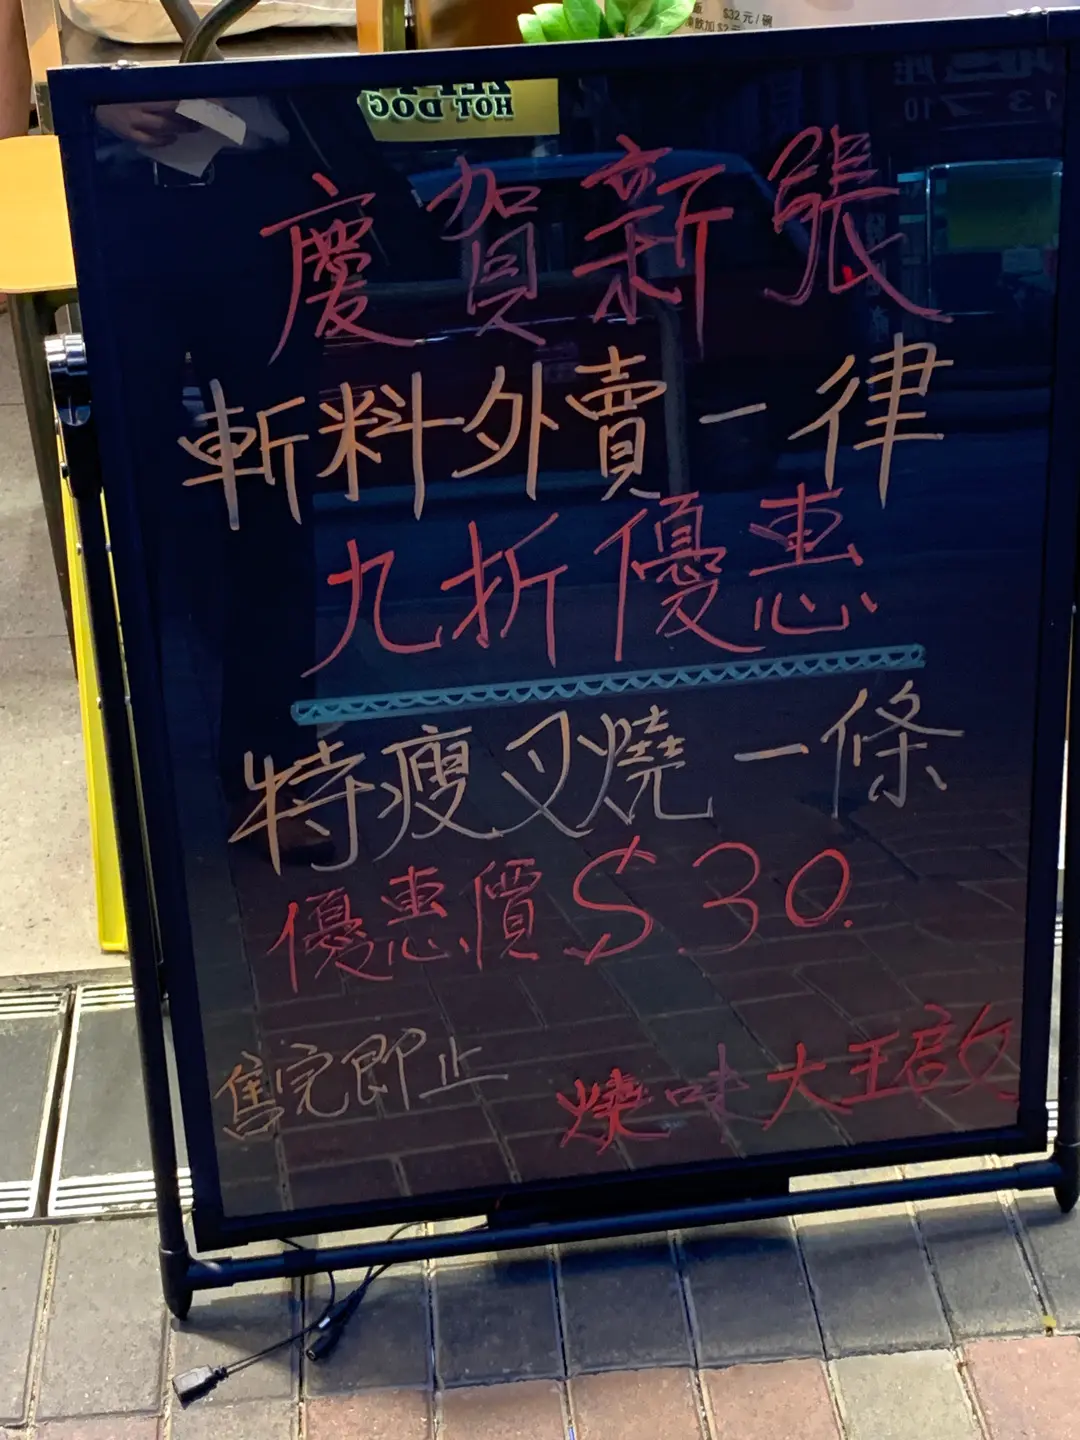 飯 $32元/碗
飲加$2元
HOT DOG
慶賀新張
斬料外賣一律
九折優惠
特瘦叉燒一條
優惠價$30.
售完即止
燒味大王啟